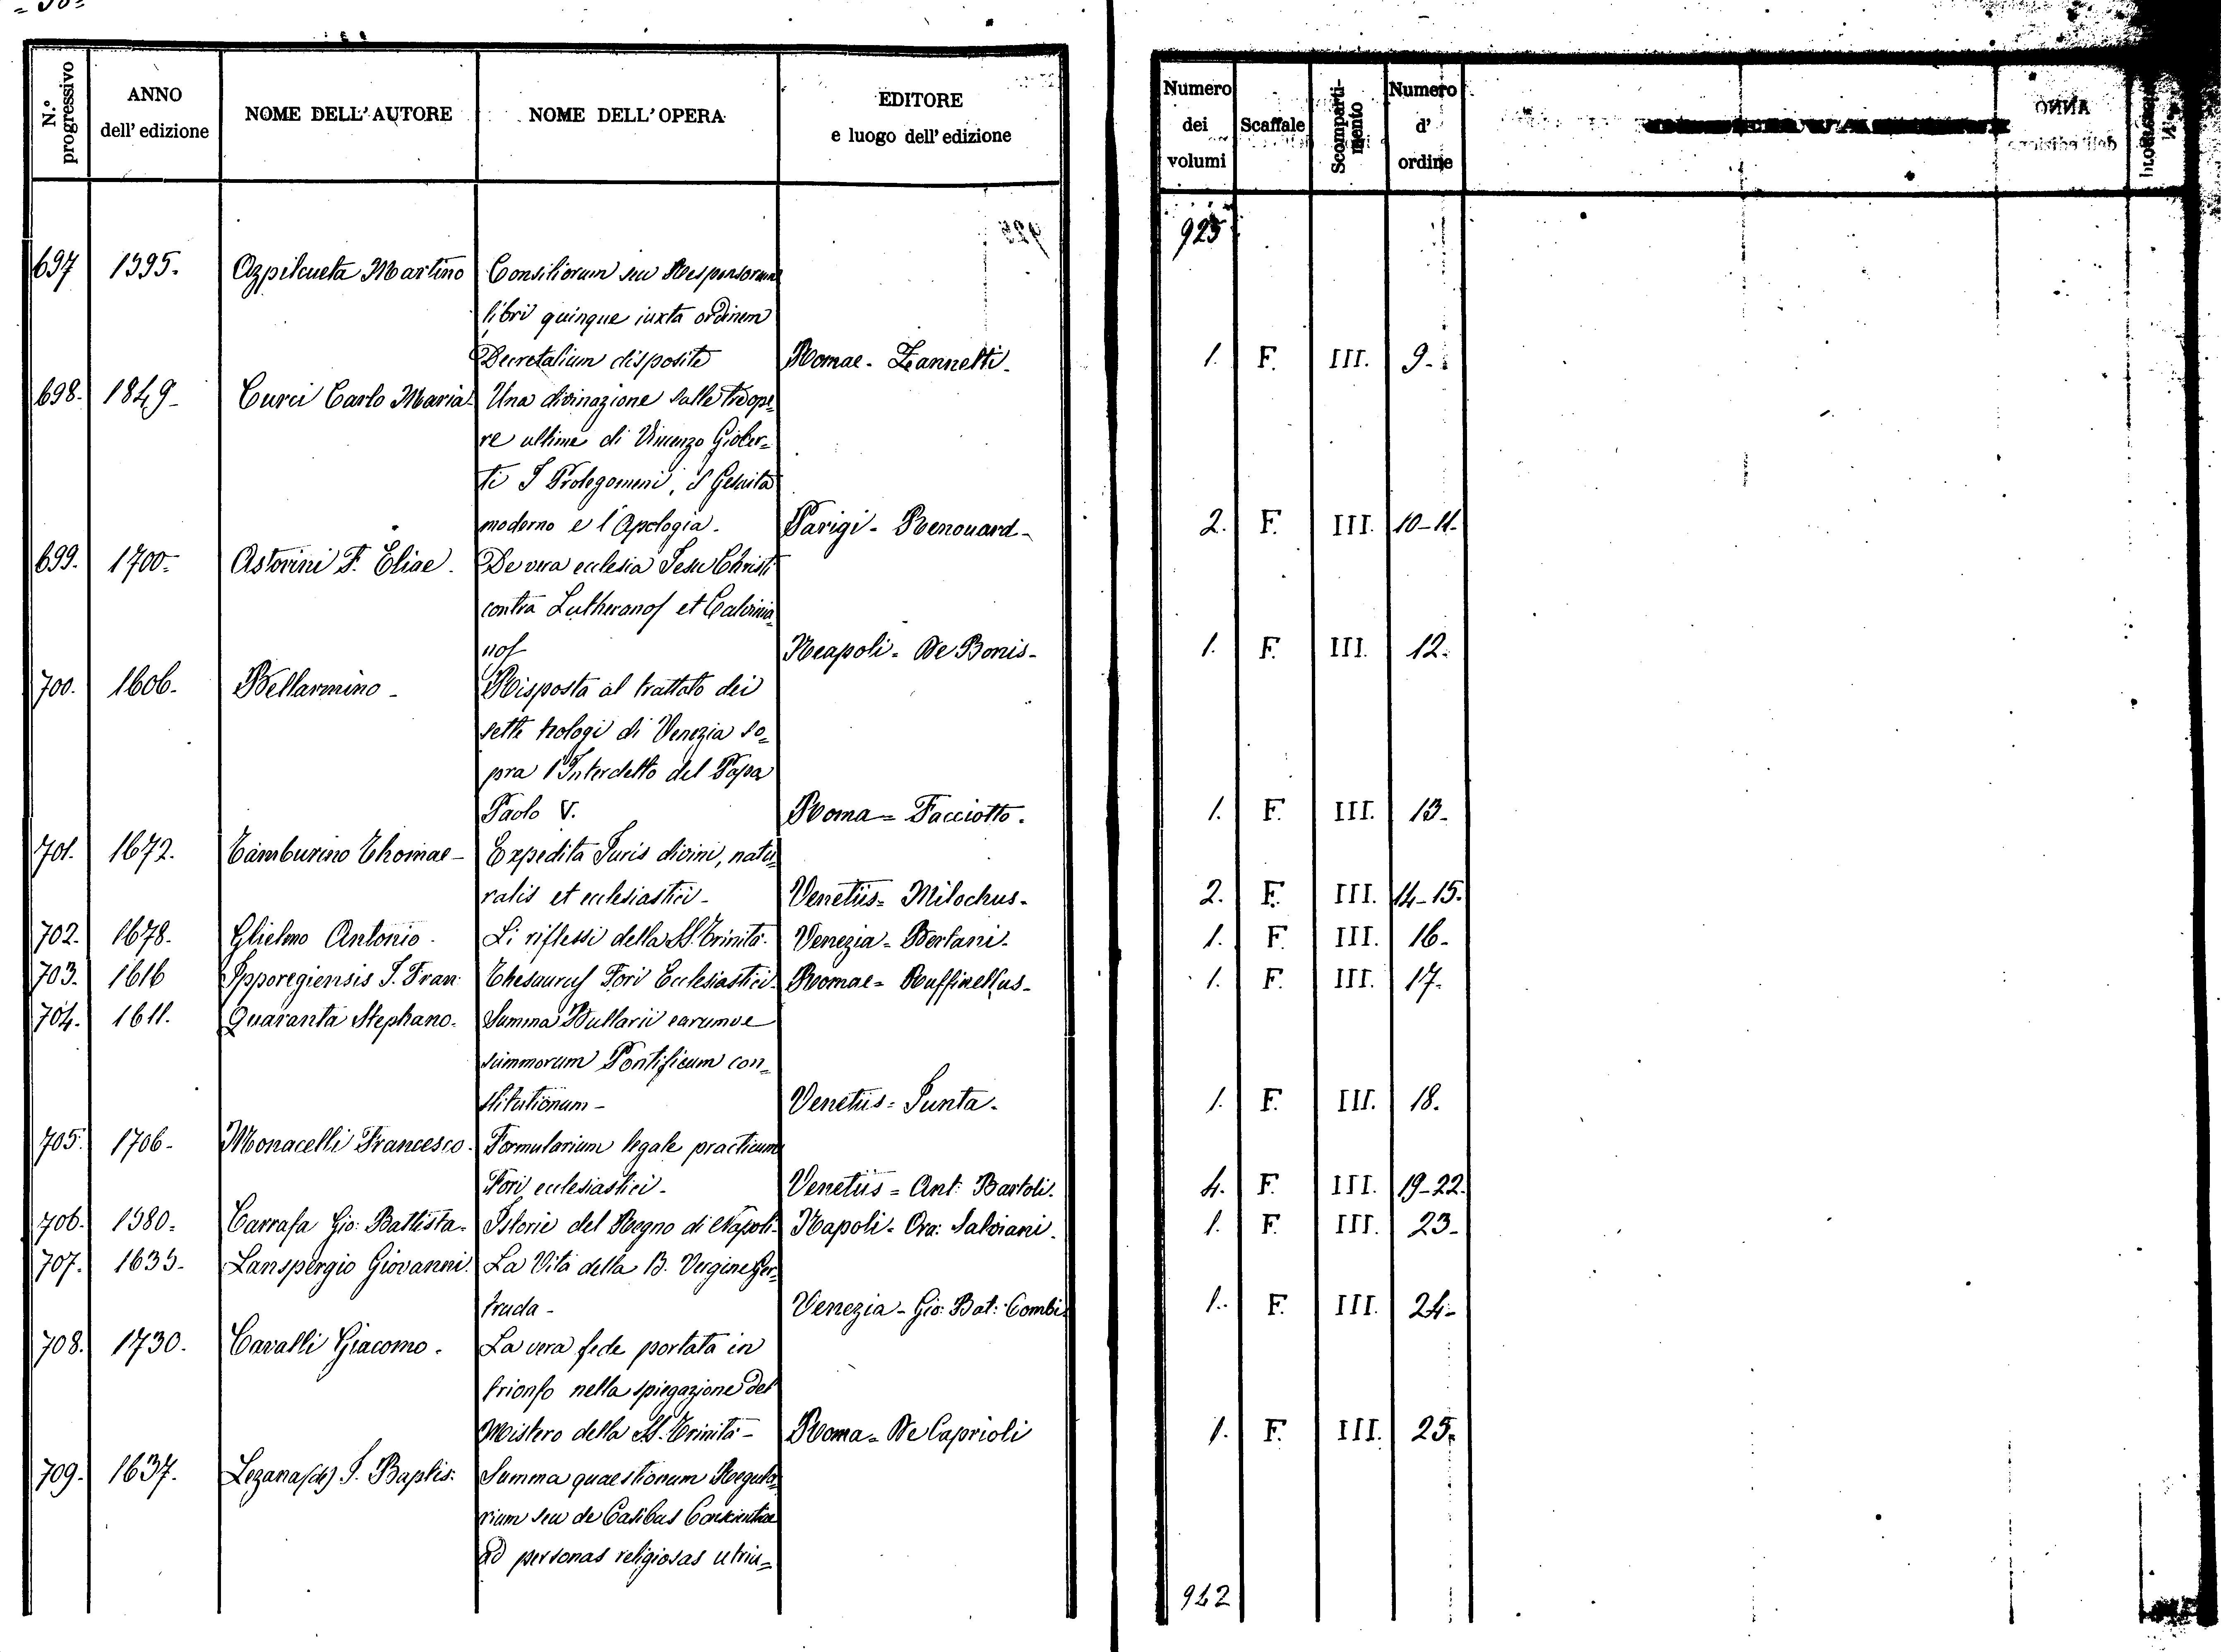 N.° progressivo
ANNO dell' edizione
NOME DELL' AUTORE
NOME DELL' OPERA
EDITORE e luogo dell' edizione
Numero dei volumi
Scaffale
Scomparti-mento
Numero d' ordine
925
697 1595. Azpilcueta Martino Consiliorum seu Responsorum
libri quinque iuxta ordinem
Decretalium disposite Romae - Zannetti. 1. F. III. 9.
698. 1849 - Curci Carlo Maria. Una divinazione sulle tre ope=
re ultime di Vincenzo Giober=
ti I Prolegomeni, il Gesuita
moderno e l'Apologia. Parigi - Renouard - 2. F. III. 10-11.
699. 1700 = Astorini F. Eliae. De vera ecclesia Jesu Christi
contra Lutheranos et Calvinia=
nos Neapoli = De Bonis - 1. F. III. 12.
700. 1606. Bellarmino - Risposta al trattato dei
sette teologi di Venezia so=
pra l'Interdetto del Papa
Paolo V. Roma = Facciotto. 1. F. III. 13.
701. 1672. Tamburino Thomae - Expedita Juris divini, natu=
ralis et ecclesiastici - Venetiis = Milochus - 2. F. III. 14-15.
702. 1678. Glielmo Antonio. Li riflessi della SS. Trinità. Venezia = Bertani. 1. F. III. 16.
703. 1616 Ipporegiensis J. Fran. Thesaurus Fori Ecclesiastici. Romae = Ruffinellus - 1. F. III. 17.
704. 1611. Quaranta Stephano. Summa Bullarii earumve
summorum Pontificum con=
stitutionum - Venetiis = Junta. 1. F. III. 18.
705. 1706 - Monacelli Francesco. Formularium legale practicum
Fori ecclesiastici - Venetiis = Ant: Bartoli. 4. F. III. 19-22.
706. 1580 = Carrafa Gio: Battista. Istorie del Regno di Napoli. Napoli = Ora: Salviani. 1. F. III. 23.
707. 1635 - Lanspergio Giovanni. La Vita della B. Vergine Ger=
truda - Venezia - Gio: Bat: Combi. 1. F. III. 24.
708. 1730. Cavalli Giacomo. La vera fede portata in
trionfo nella spiegazione del
Mistero della SS. Trinità - Roma = De Caprioli 1. F. III. 25.
709. 1637. Lezana (de) J. Baptis: Summa quaestionum Regula=
rium seu de Casibus Conscientiae
ad personas religiosas utriu=
942